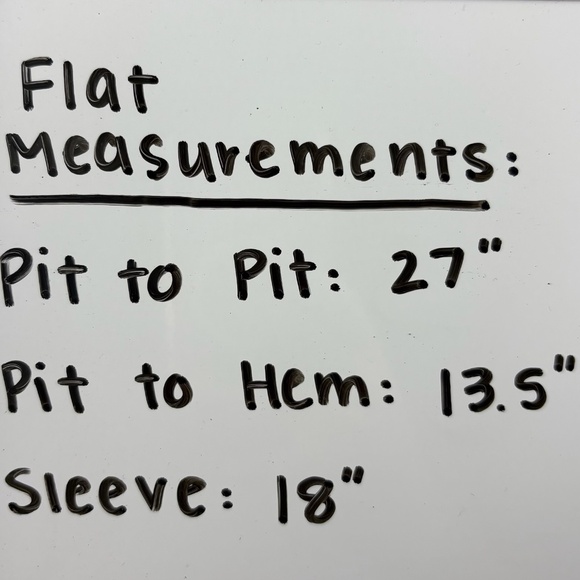 Flat
Measurements:
Pit to Pit: 27"
Pit to Hem: 13.5"
Sleeve: 18"